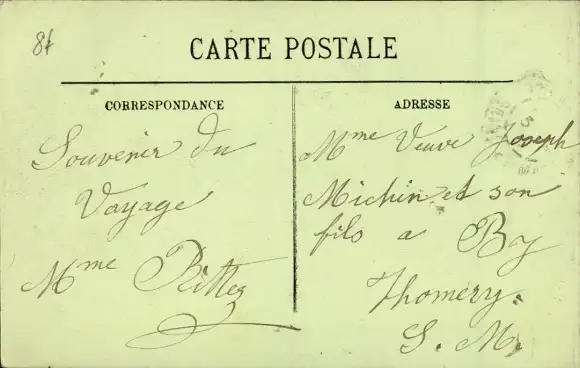 84
CARTE POSTALE
CORRESPONDANCE
Souvenir du
Voyage
Mme
ADRESSE
Mme Veuve Joseph
Michin et son
fils a By
Thomery.
S. M.